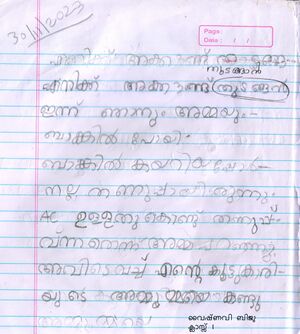 30/11/2023
Page:
Date: / /
എനിക്ക് അക്കൗണ്ട്
തുടങ്ങാൻ
എനിക്ക് അക്കൗണ്ട് തുടങ്ങാൻ
ഇന്ന് ഞാനും അമ്മയും
ബാങ്കിൽ പോയി
ബാങ്കിൽ കയറിയപ്പോൾ
നല്ല തണുപ്പായിരുന്നു.
AC ഉള്ളതുകൊണ്ട് തണുപ്പ്
വന്നതെന്ന് അമ്മ പറഞ്ഞു
അവിടെവച്ച് എന്റെ കൂട്ടുകാരി
യുടെ അമ്മൂമ്മയെ കണ്ടു
വൈഷ്ണവി ബിജു
ക്ലാസ്സ് 1